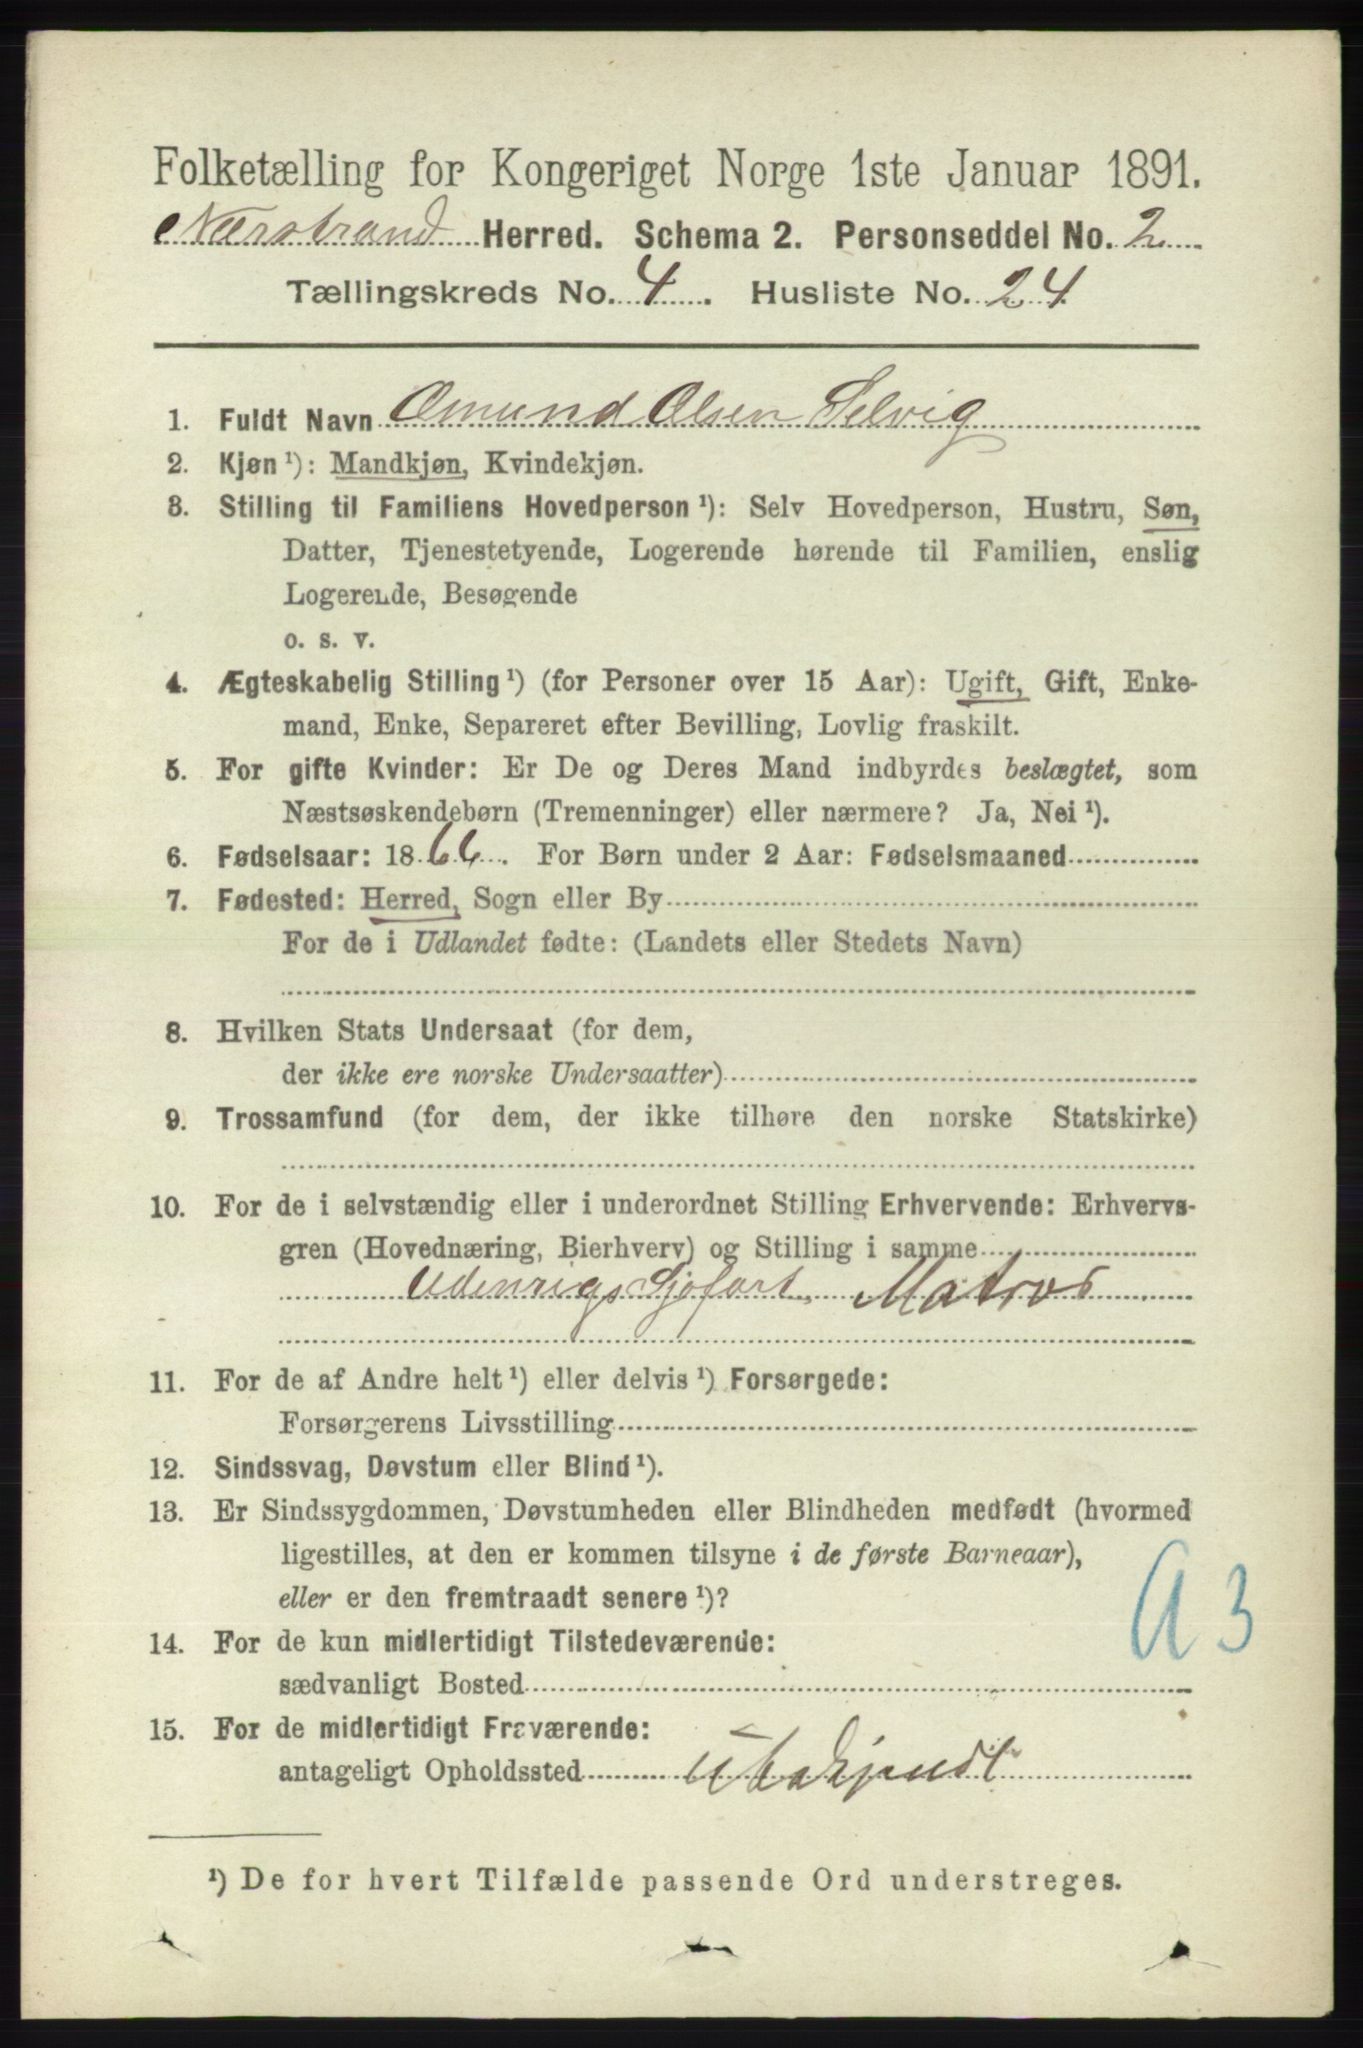 Folketælling for Kongeriget Norge 1ste Januar 1891.
Nærstrand Herred. Schema 2. Personseddel No. 2
Tællingskreds No. 4. Husliste No. 24
1. Fuldt Navn Omund Olsen Selvig
2. Kjøn ¹): Mandkjøn, Kvindekjøn.
3. Stilling til Familiens Hovedperson ¹): Selv Hovedperson, Hustru, Søn,
Datter, Tjenestetyende, Logerende hørende til Familien, enslig
Logerende, Besøgende
o. s. v.
4. Ægteskabelig Stilling ¹) (for Personer over 15 Aar): Ugift, Gift, Enke-
mand, Enke, Separeret efter Bevilling, Lovlig fraskilt.
5. For gifte Kvinder: Er De og Deres Mand indbyrdes beslægtet, som
Næstsøskendebørn (Tremenninger) eller nærmere? Ja, Nei ¹).
6. Fødselsaar: 1866. For Børn under 2 Aar: Fødselsmaaned
7. Fødested: Herred, Sogn eller By
For de i Udlandet fødte: (Landets eller Stedets Navn)
8. Hvilken Stats Undersaat (for dem,
der ikke ere norske Undersaatter)
9. Trossamfund (for dem, der ikke tilhøre den norske Statskirke)
10. For de i selvstændig eller i underordnet Stilling Erhvervende: Erhvervs-
gren (Hovednæring, Bierhverv) og Stilling i samme
Udenrigs Sjøfart, Matros
11. For de af Andre helt ¹) eller delvis ¹) Forsørgede:
Forsørgerens Livsstilling
12. Sindssvag, Døvstum eller Blind ¹).
13. Er Sindssygdommen, Døvstumheden eller Blindheden medfødt (hvormed
ligestilles, at den er kommen tilsyne i de første Barneaar),
eller er den fremtraadt senere ¹)?
A 3
14. For de kun midlertidigt Tilstedeværende:
sædvanligt Bosted
15. For de midlertidigt Fraværende:
antageligt Opholdssted Ubekjendt
¹) De for hvert Tilfælde passende Ord understreges.